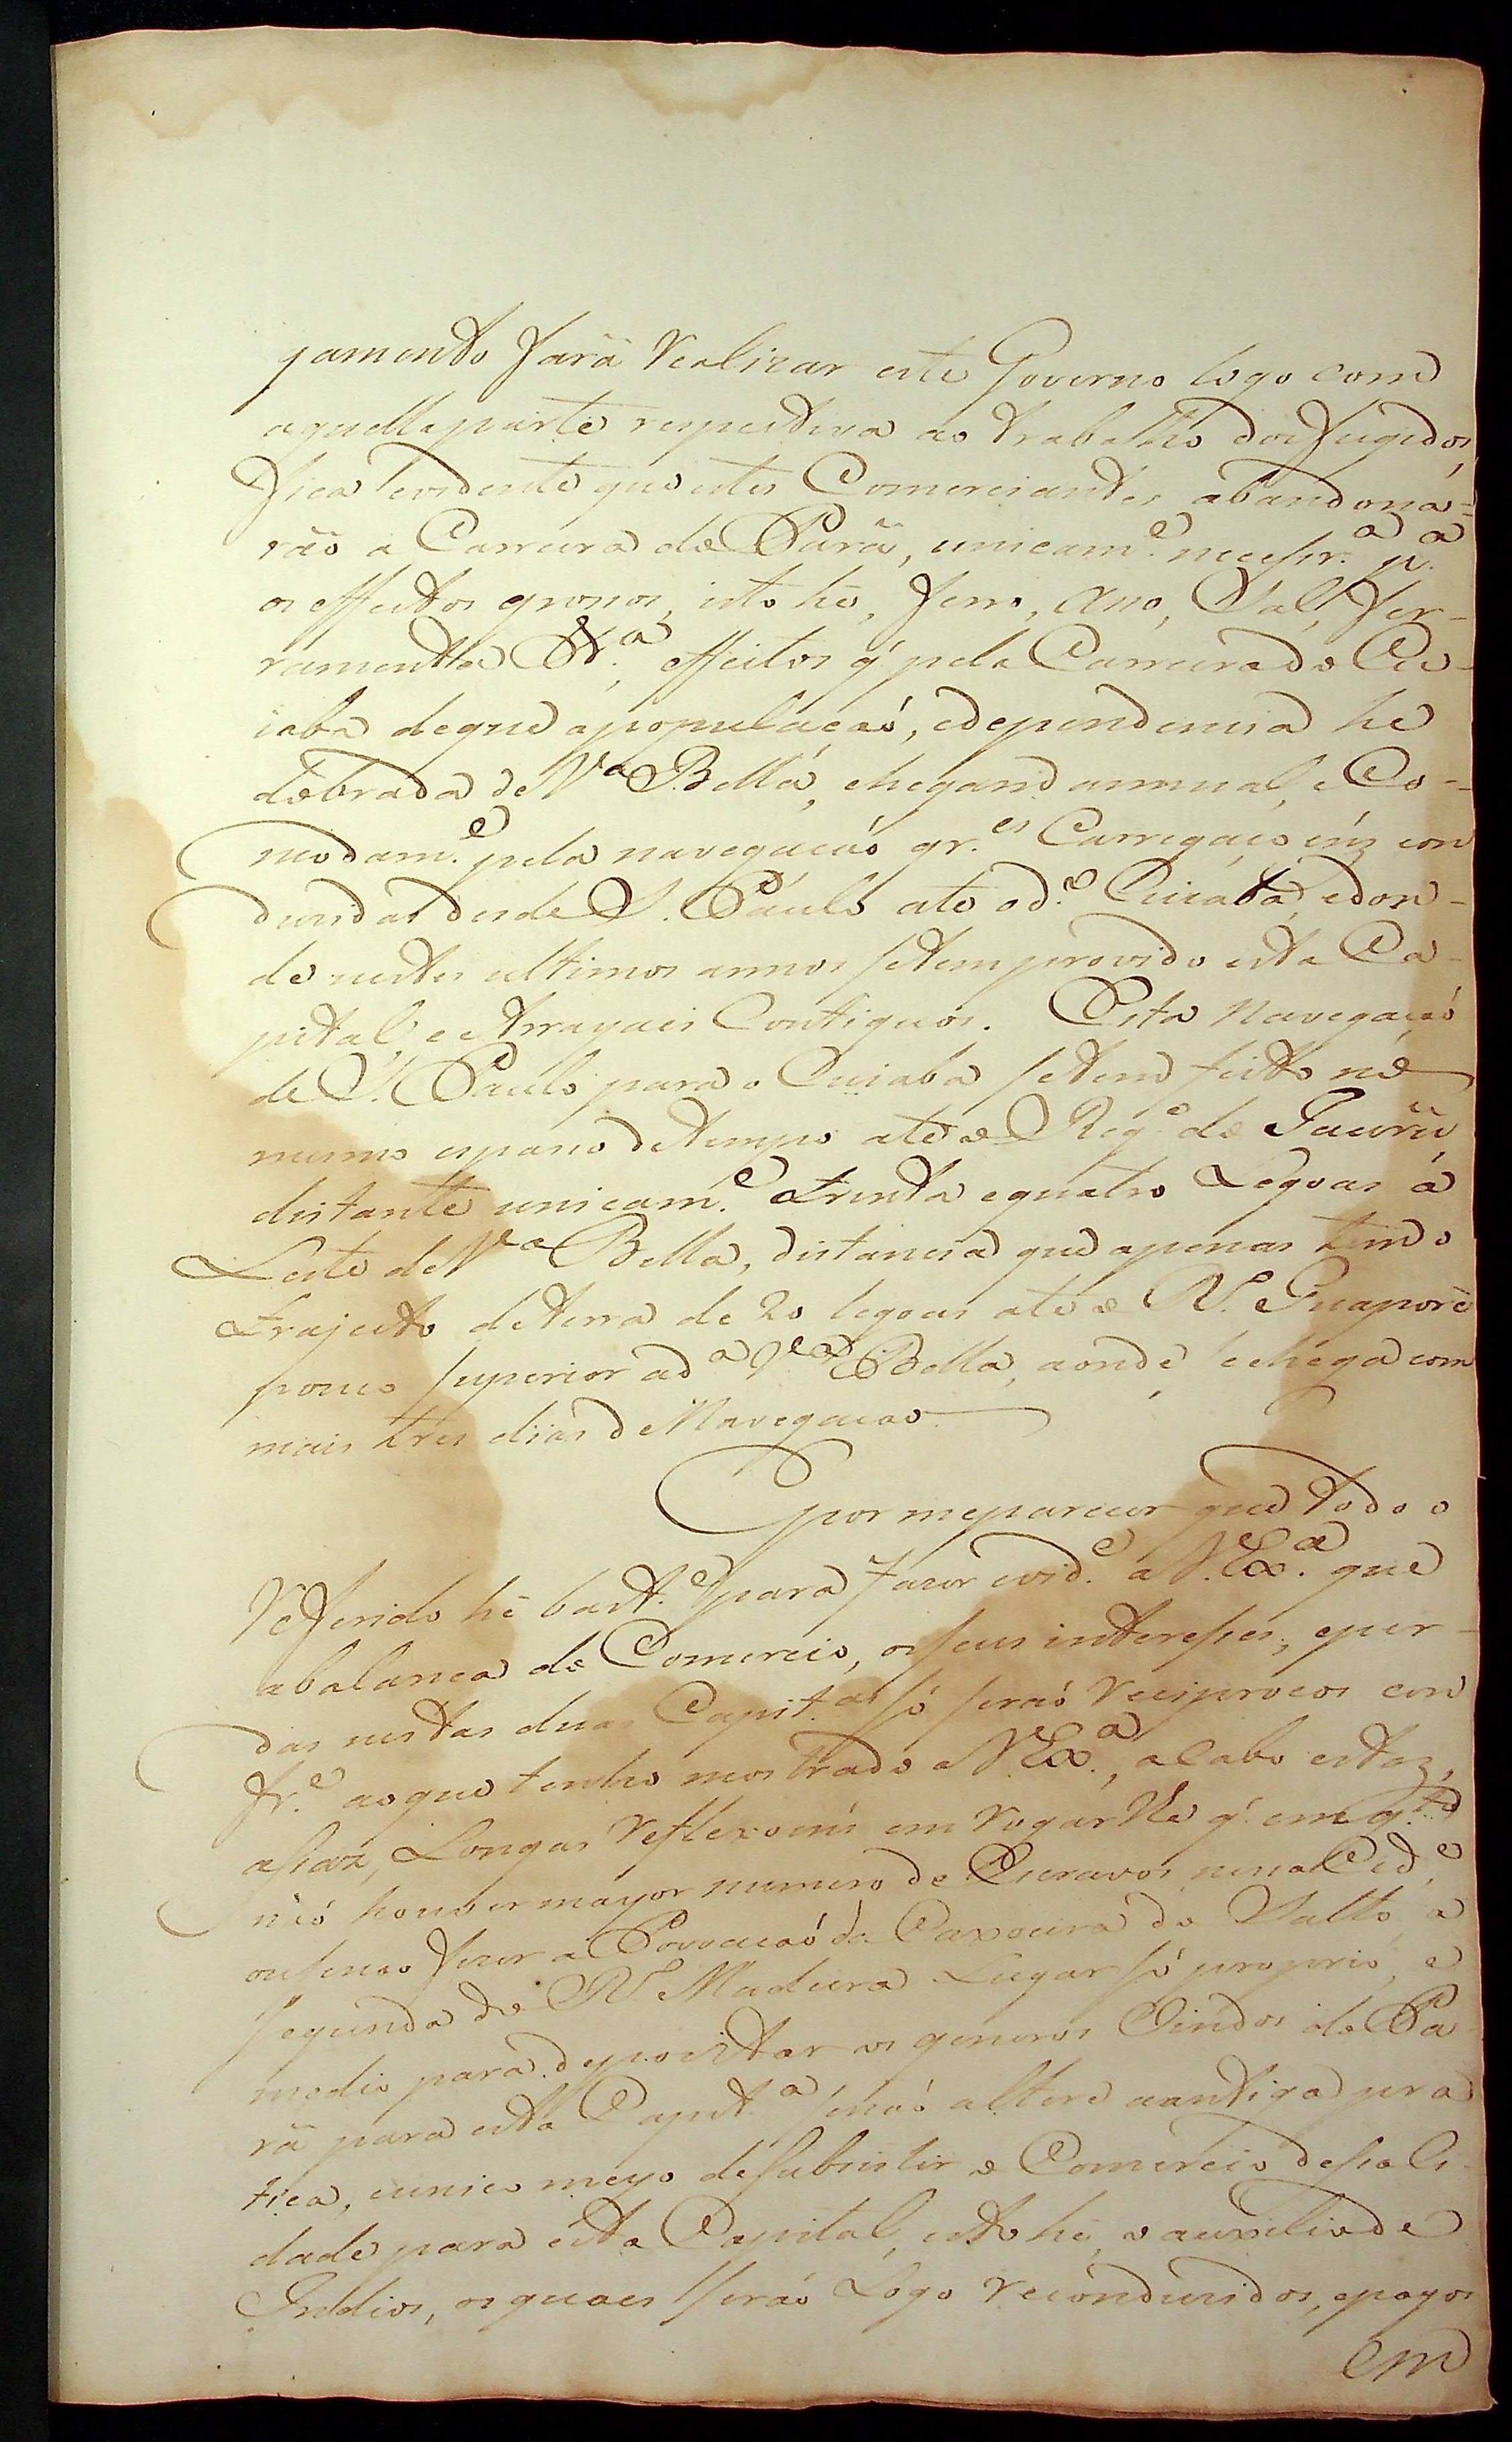 gamento fará Realizar este Governo logo com
aquella parte respectiva ao trabalho dos fugidos,
fica evidente que estes Comerciantes abandona=
rão a Carreira do Pará, unicam.e necessr.a p.a
os effeitos grosos, isto hé, ferro, Aço, Sal, fer-
ramenta &.a, effeitos q' pela Carreira do Cu-
iaba de que a populaçaó, e dependencia he
dobrada de V.a Bella, chegand annual, e Co-
modam.e pela navegaçaó gr.es Carregaçoens con
duzidas desde S. Paulo ate o d.o Cuiabá, e don-
de nestes ultimos annos se tem provido esta Ca-
pital, e Arrayaes Contiguos. Esta Navegaçaó
de S. Paulo para o Cuiaba se tem feito no
mesmo espaso de tempo até o Reg.o do Jaurú
distante unicam.e trinta e quatro Legoas á
Leste de V.a Bella, distancia que apenas tem o
trajecto de terra de 20 legoas ate o R.o Guaporé
pouco superior a d.a V.a Bella, aonde se chega com
mais tres dias de Navegacao
E por me parecer que todo o
Referido hé bast.e para fazer evid.e a V. Ex.a que
a balanca do Comercio, os seus interesses, e per-
das nestas duas Capit.as só seraó Reciprocos con
fr.e ao que tenho mostrado a V. Ex.a, acabo estas,
assaz, Longas Reflexoens em Rogar lhe q' em q.to
naó houver mayor numero de Escravos nessa Cid.e
ou senao fizer a Povoaçaó da Caxoeira do Salto, a
segunda do R.o Madeira Lugar só proprio, e
medio para depozitar os generos Vindos do Pa
rá para esta Capit.a senaó altere a antiga pra
tica, e unico meyo de subsistir o Comercio dessa Ci-
dade para esta Capital, isto hé, o auxilio de
Indios, os quaes seraó Logo reconduzidos, e pagos
em